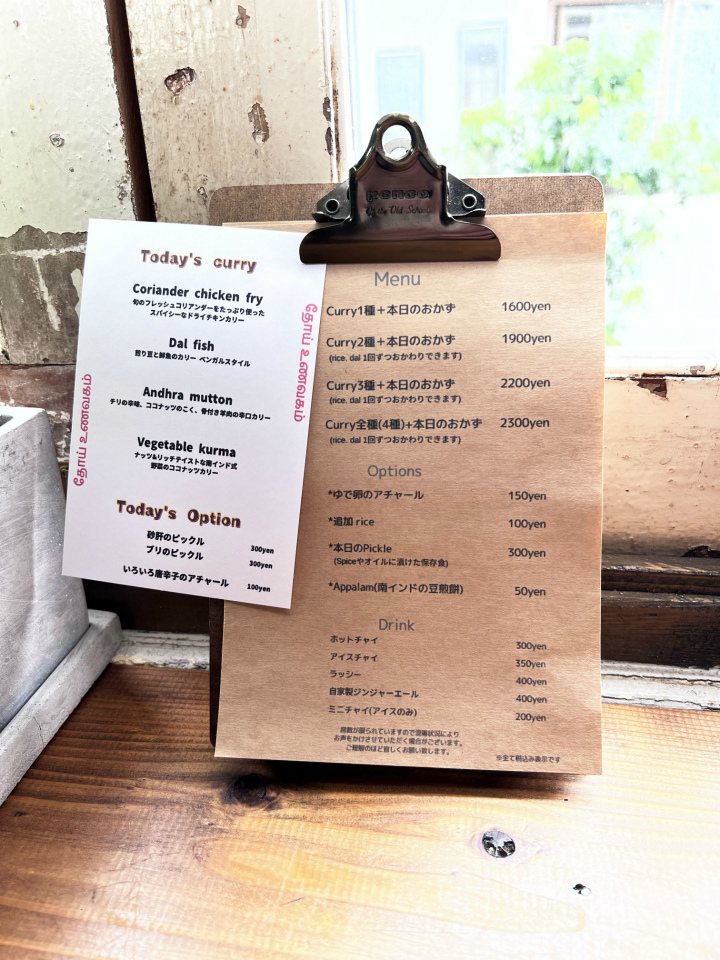 Today's curry
Coriander chicken fry
旬のフレッシュコリアンダーをたっぷり使った
スパイシーなドライチキンカリー
Dal fish
煎り豆と鮮魚のカリー ベンガルスタイル
Andhra mutton
チリの辛味、ココナッツのこく、骨付き羊肉の辛口カリー
Vegetable kurma
ナッツ&リッチテイストな南インド式
野菜のココナッツカリー
Today's Option
砂肝のピックル 300yen
ブリのピックル 300yen
いろいろ唐辛子のアチャール 100yen
தோய் உணவகம்
தோய் உணவகம்
PENCO
Menu
Curry1種＋本日のおかず 1600yen
Curry2種＋本日のおかず 1900yen
(rice. dal 1回ずつおかわりできます)
Curry3種＋本日のおかず 2200yen
(rice. dal 1回ずつおかわりできます)
Curry全種(4種)+本日のおかず 2300yen
(rice. dal 1回ずつおかわりできます)
Options
*ゆで卵のアチャール 150yen
*追加 rice 100yen
*本日のPickle 300yen
(Spiceやオイルに漬けた保存食)
*Appalam(南インドの豆煎餅) 50yen
Drink
ホットチャイ 300yen
アイスチャイ 350yen
ラッシー 400yen
自家製ジンジャーエール 400yen
ミニチャイ(アイスのみ) 200yen
席数が限られていますので混雑状況により
お声をかけさせていただく場合がございます。
ご理解のほど宜しくお願い致します。
※全て税込み表示です